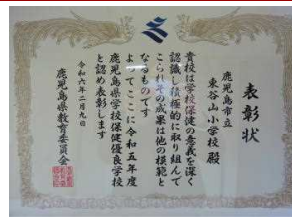 表彰状
鹿児島市立
東谷山小学校 殿
貴校は学校保健の意義を深く
認識し積極的に取り組んで
こられその成果は他の模範と
なるものです
よってここに令和五年度
鹿児島県学校保健優良学校
と認め表彰します
令和六年二月九日
鹿児島県教育委員会